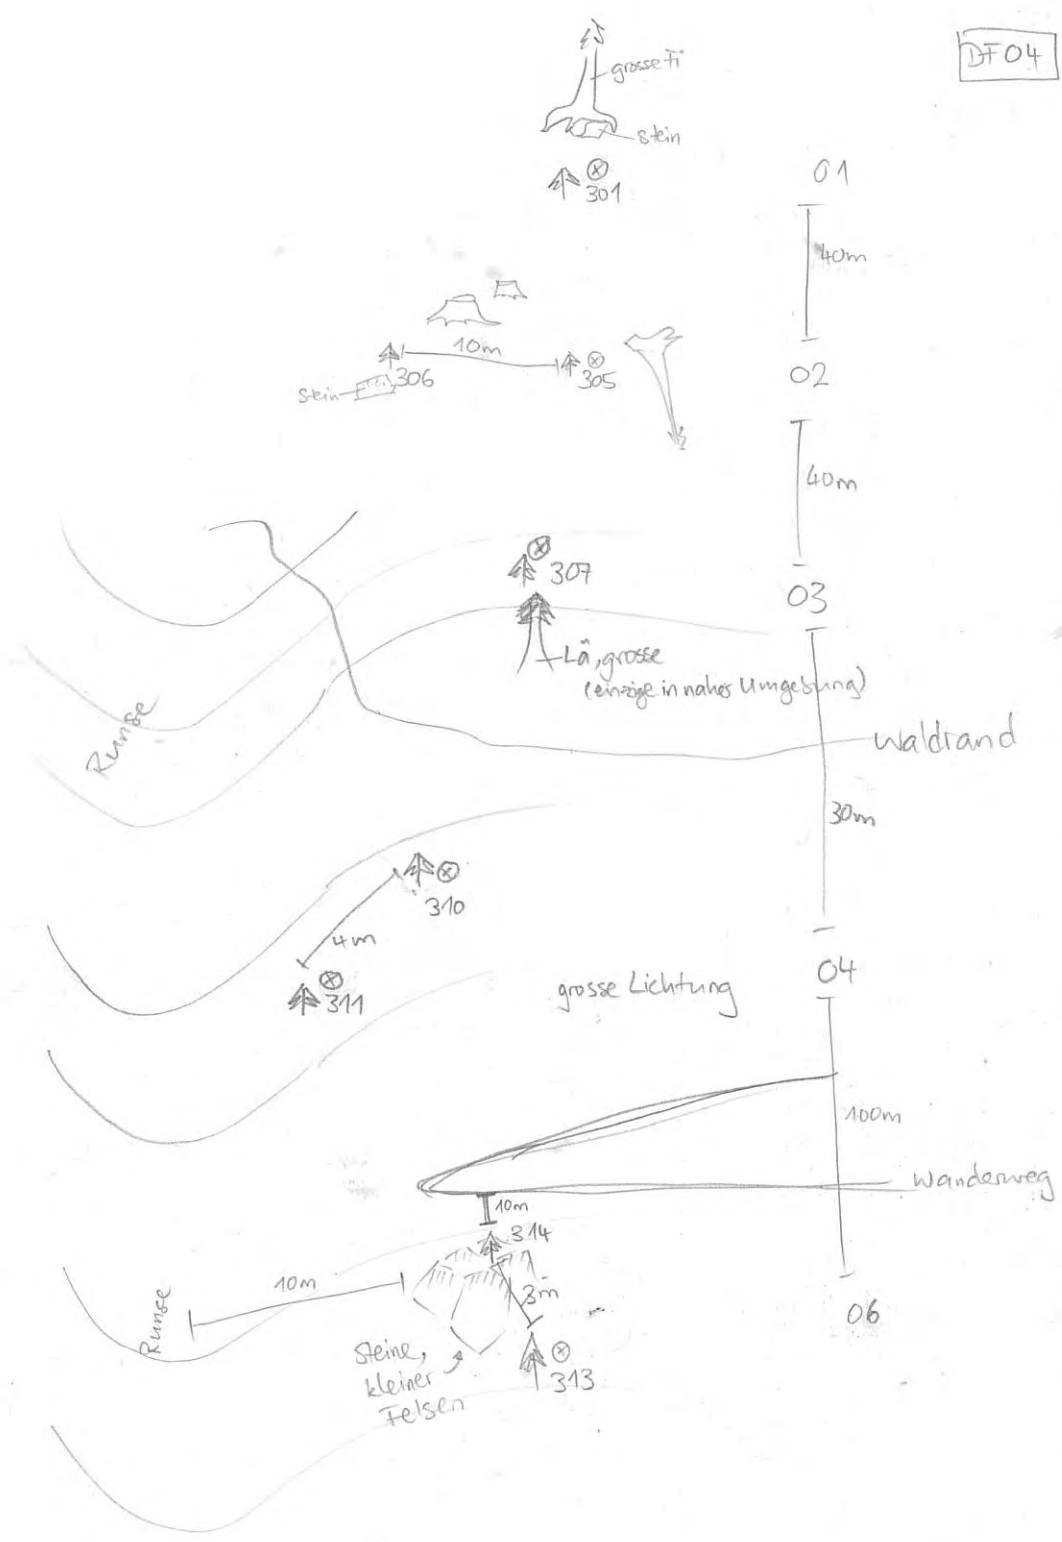 DF04
grosse Fi
Stein
301
01
40m
10m
306
305
Stein
02
40m
307
03
Lä, grosse
(einzige in naher Umgebung)
Runse
Waldrand
30m
310
4m
311
grosse Lichtung
04
100m
Wanderweg
10m
314
10m
3m
Runse
06
Steine,
kleiner
Felsen
313